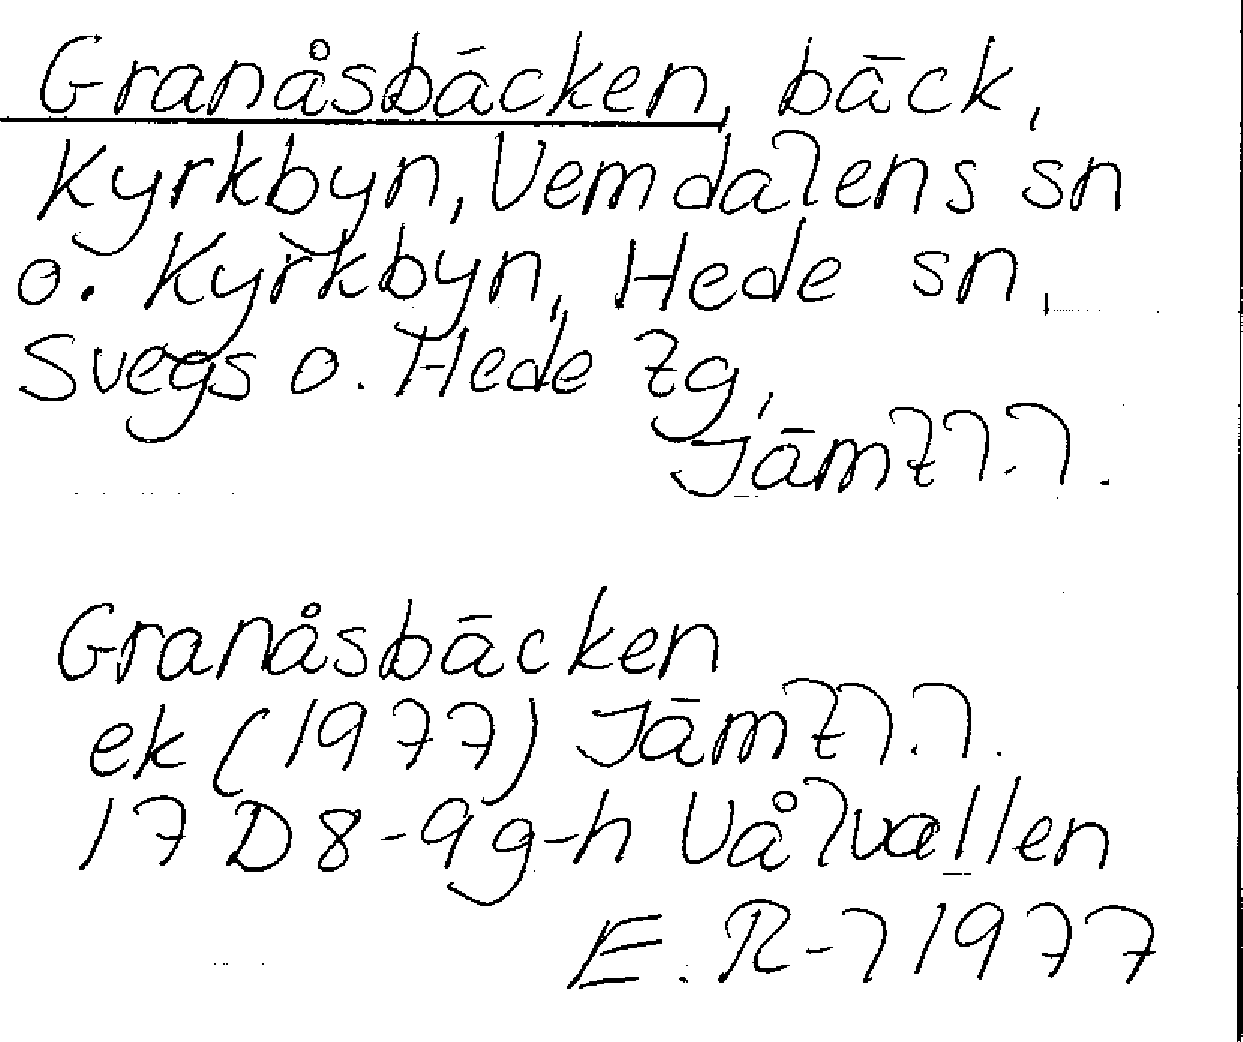 Granåsbäcken, bäck,
Kyrkbyn, Vemdalens sn
o. Kyrkbyn, Hede sn,
Svegs o. Hede tg,
Jämtl.l.
Granåsbäcken
ek (1977) Jämtl.l.
17 D 8-9 g-h Vålvallen
E. R-l 1977